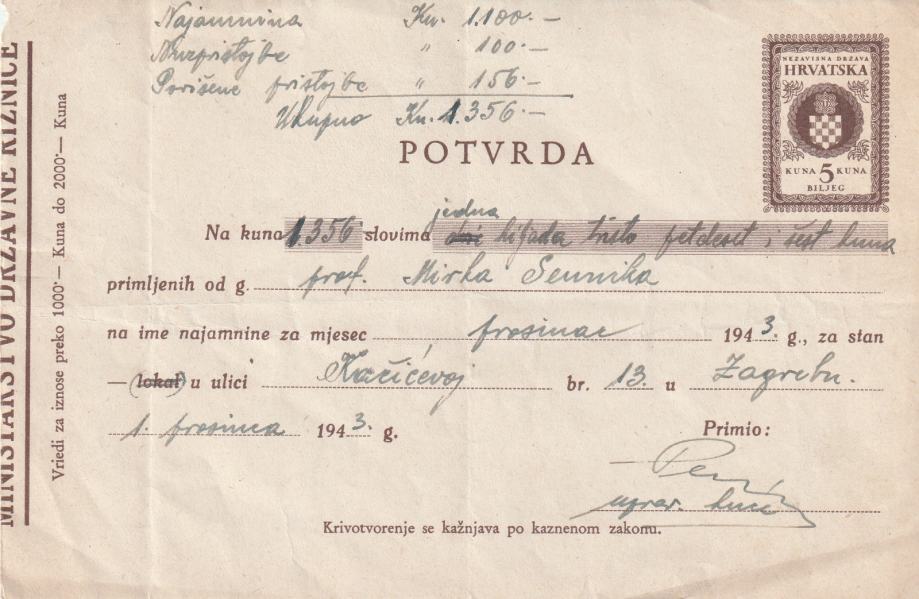 Najamnina Kn. 1.100.—
Nuzpristojbe " 100.—
Povišene pristojbe " 156.—
Ukupno Kn. 1.356.—
MINISTARSTVO DRŽAVNE RIZNICE
Vriedi za iznose preko 1000·— Kuna do 2000·— Kuna
NEZAVISNA DRŽAVA
HRVATSKA
KUNA 5 KUNA
BILJEG
POTVRDA
jedna
Na kuna 1.356 slovima hiljada tristo petdeset i šest kuna
primljenih od g. prof. Mirka Sennika
na ime najamnine za mjesec prosinac 1943. g., za stan
— (lokal) u ulici Kačićevoj br. 13. u Zagrebu.
1. prosinca 1943. g. Primio:
uprav. kuće
Krivotvorenje se kažnjava po kaznenom zakonu.